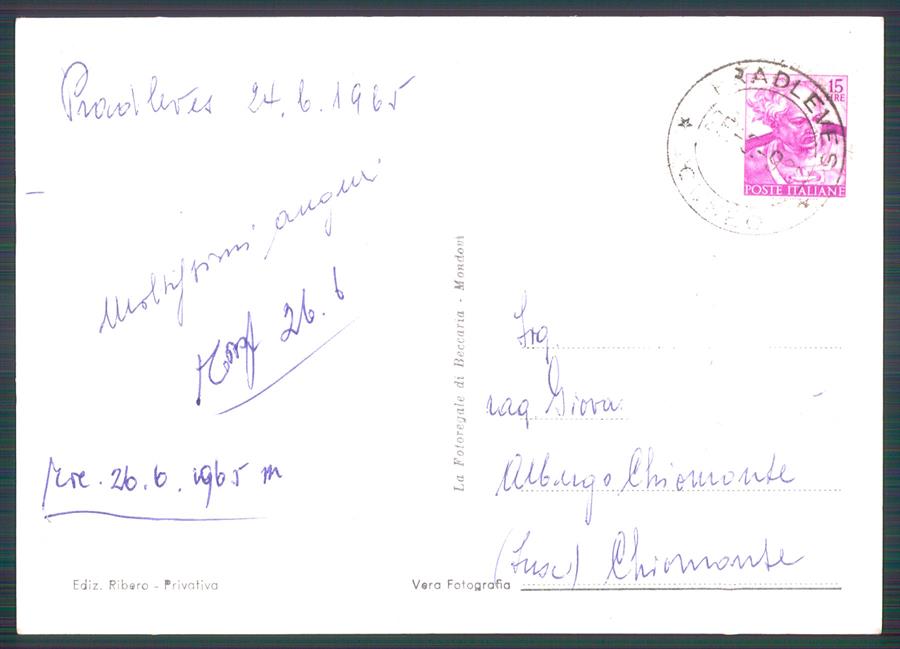 Pradleves 24.6.1965
Moltissimi auguri
26.6
26.6.1965 m
Ediz. Ribero - Privativa
La Fotoregale di Beccaria - Mondovì
Vera Fotografia
PRADLEVES
CUNEO
15
LIRE
POSTE ITALIANE
Sig.
rag. Giova
Albergo Chiomonte
(Susa) Chiomonte